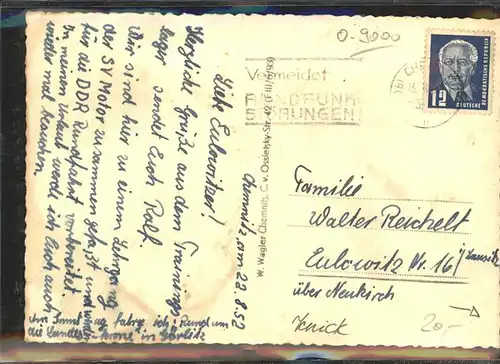 Chemnitz, am 22.8.52
Liebe Eulowitzer!
Herzliche Grüße aus dem Trainings-
lager sendet Euch Ralf
Wir sind hier zu einem Lehrgang
der SV Motor zusammengefaßt und
für die DDR Rundfahrt vorbereitet.
In meinem Urlaub werde ich Euch auch
wieder mal besuchen.
Am Sonntag fahre ich "Rund um
die Landeskrone" in Görlitz
W. Wagler Chemnitz, C. v. Ossietzky-Str.
0-9000
Vermeidet
RUNDFUNK-
STÖRUNGEN!
12
DEUTSCHE
DEMOKRATISCHE REPUBLIK
Familie
Walter Reichelt
Eulowitz Nr. 16 /Lausitz
über Neukirch
Knick
20,-